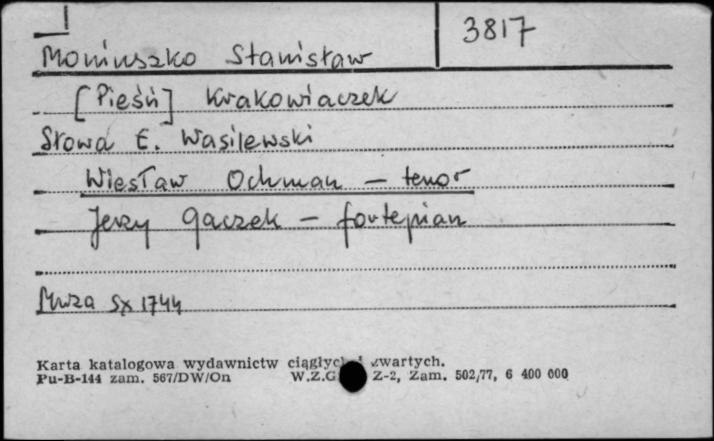 3817
Moniuszko Stanisław
[Pieśń] Krakowiaczek
Słowa E. Wasilewski
Wiesław Ochman – tenor
Jerzy Gaczek – fortepian
Muza SX 1744
Karta katalogowa wydawnictw ciągłych i zwartych.
Pu-B-144 zam. 567/DW/On W.Z.G. Z-2, Zam. 502/77, 6 400 000